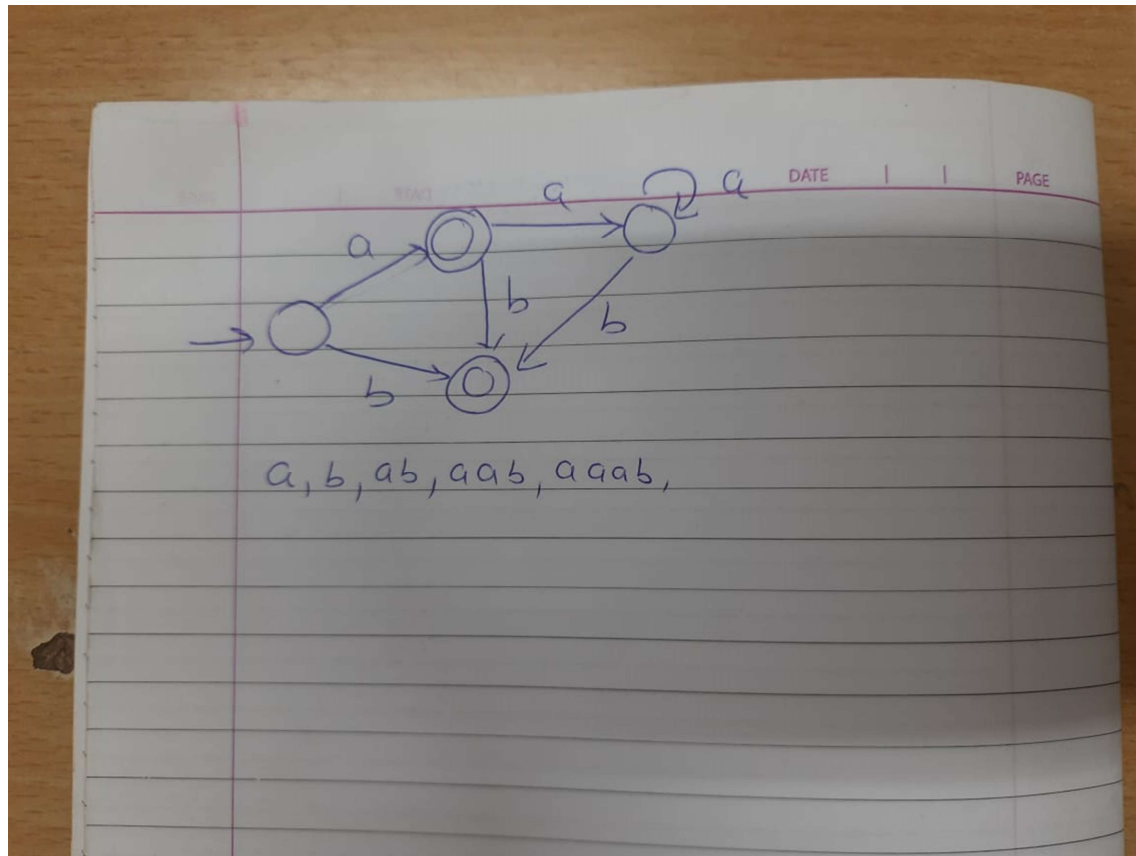 DATE PAGE
a a
a
b b
b
a, b, ab, aab, aaab,